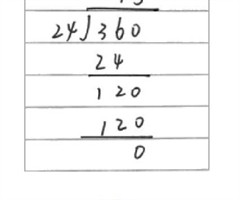 24)360
24
120
120
0